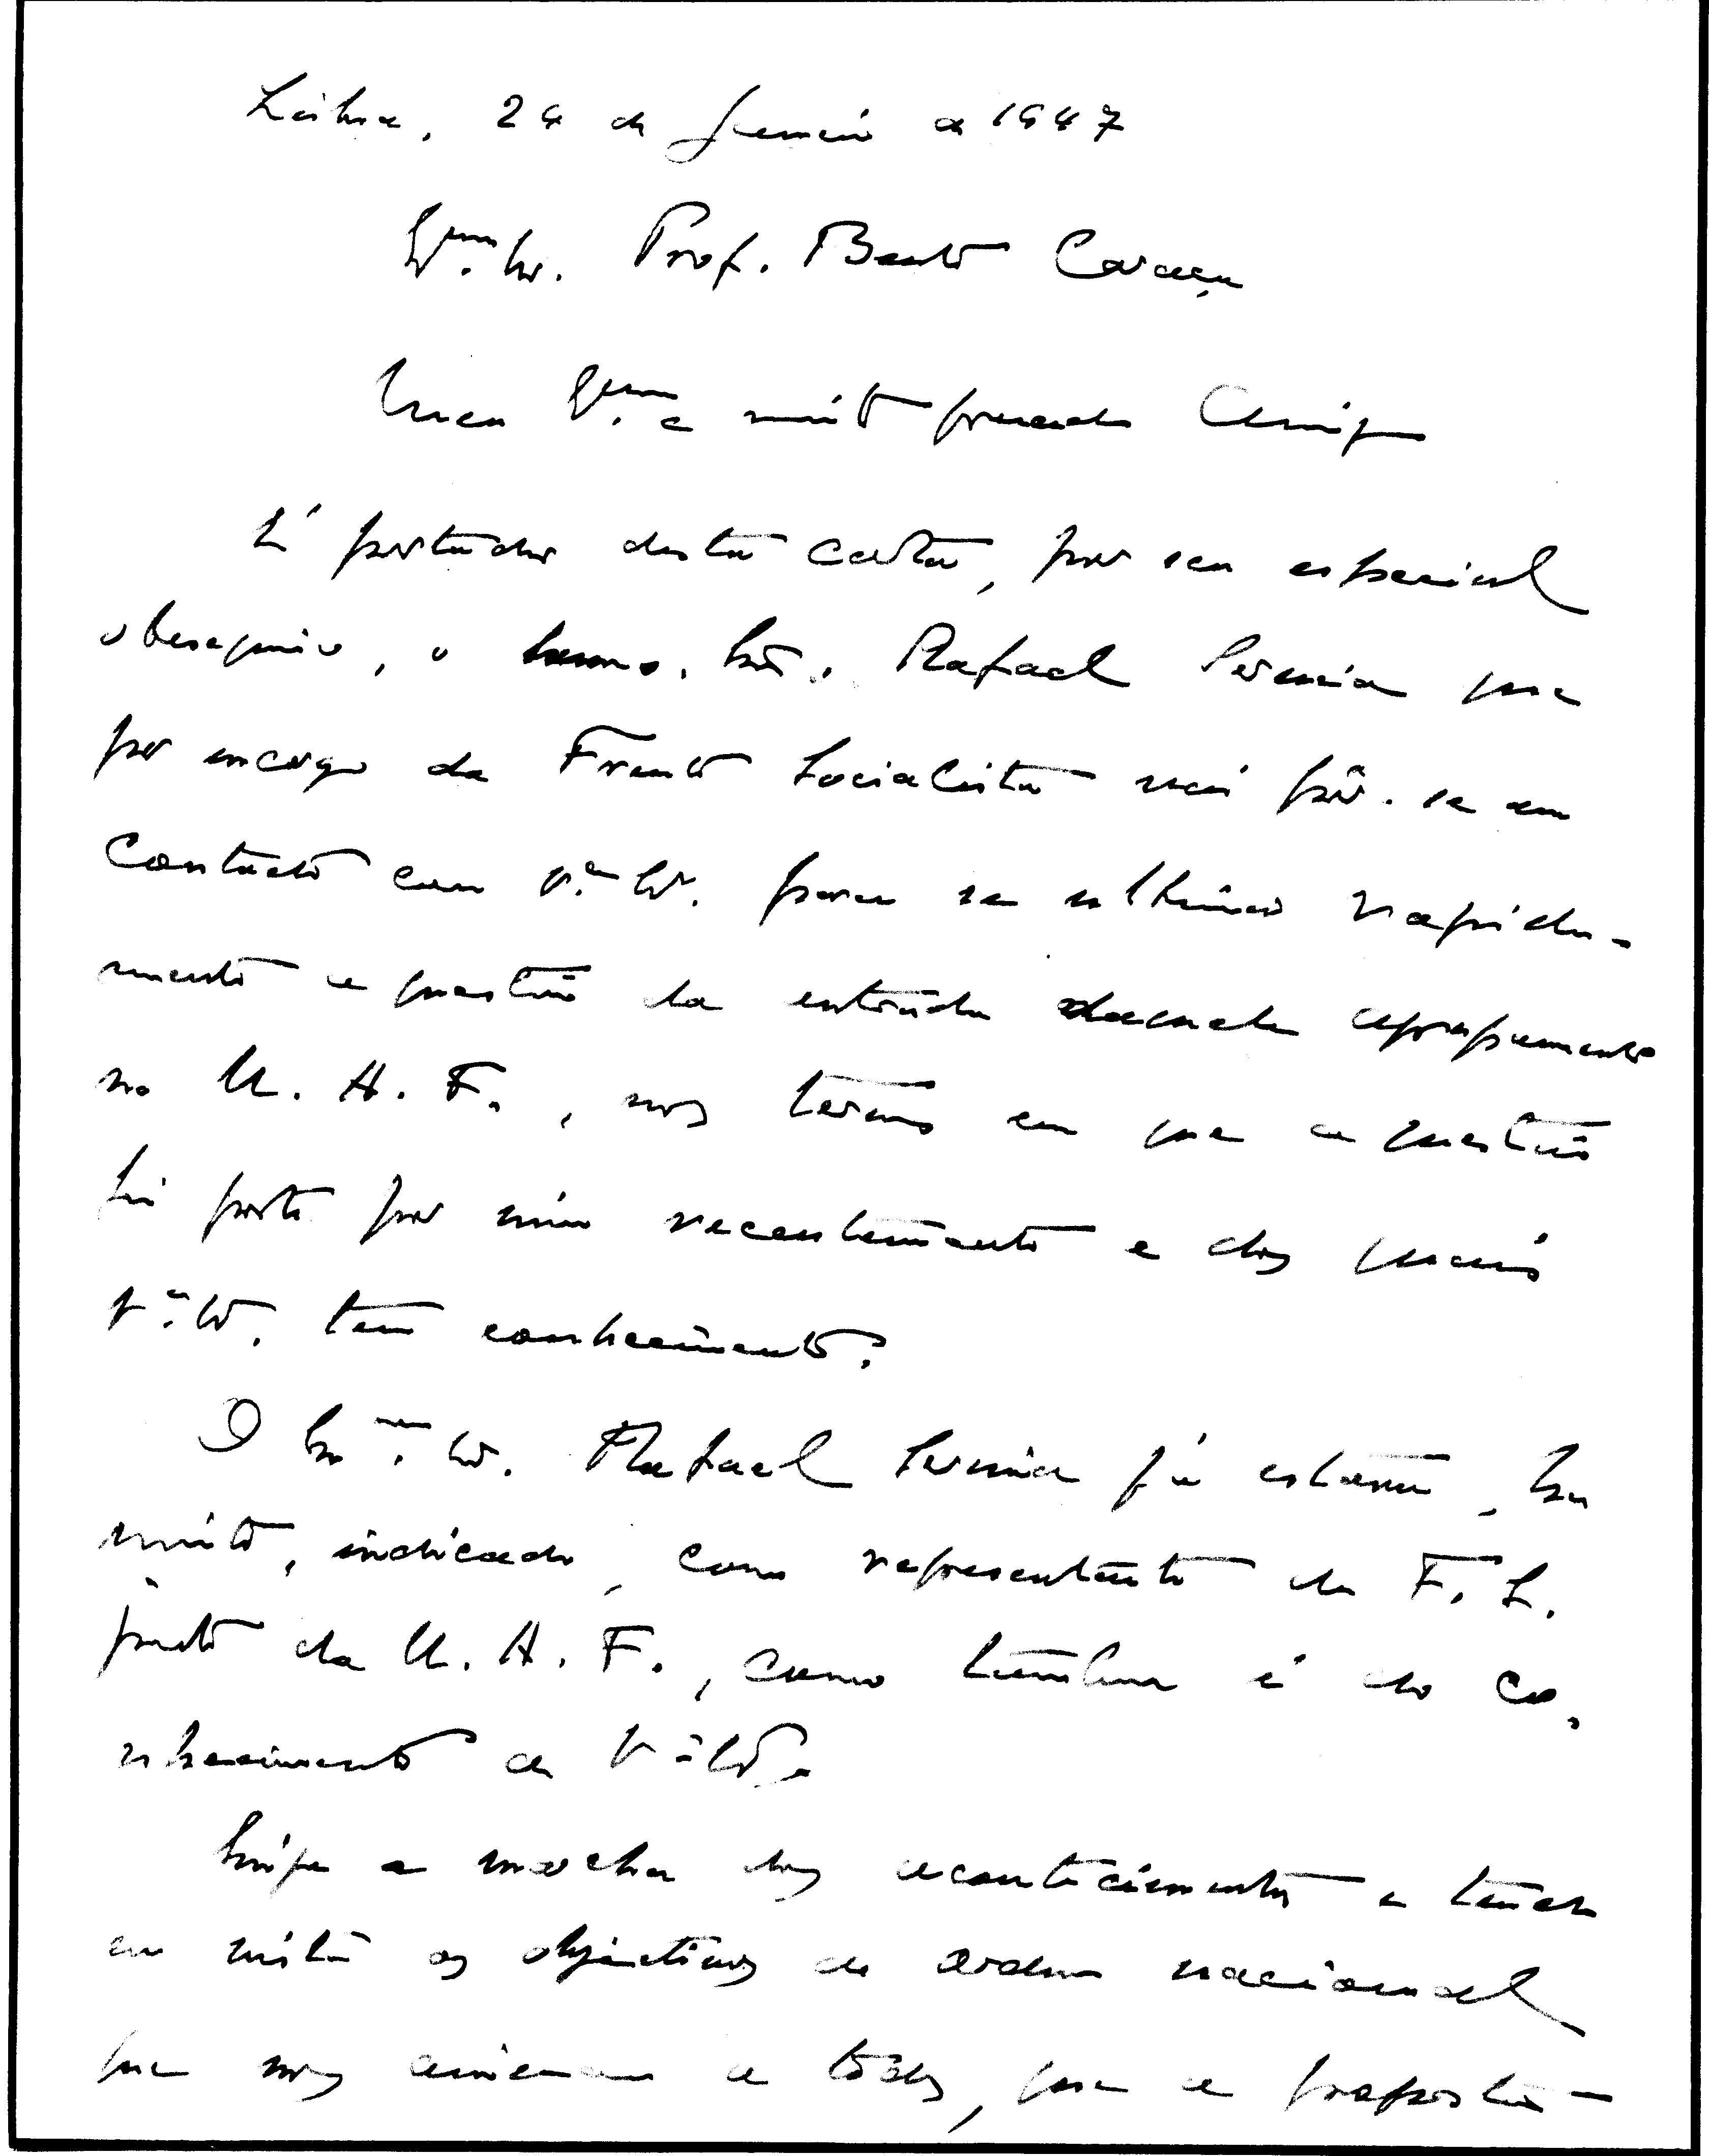 Lisboa, 24 de Janeiro de 1947
Exmo. Sr. Prof. Bento Caraça
Meu Exmo. e muito prezado Amigo
É portador desta carta, por seu especial
obsequio, o Exmo. Snr. Rafael que
por encargo da Frente Socialista vai pôr-se em
contacto com V.ª Ex. para se ultimar rapida-
mente a questão da entrada daquele agrupamento
no M. A. F., nos termos em que a questão
foi posta por mim recentemente e dos quais
V.ª Ex. tem conhecimento.
O Exmo. Sr. Rafael já estava, ha
muito, indicado, como representante da F. S.
junto da M. A. F., como tambem é do co-
nhecimento de V.ª Ex.
Exige a marcha dos acontecimentos e tendo
em vista os objectivos de ordem nacional
que nos animam a todos, que a proposta